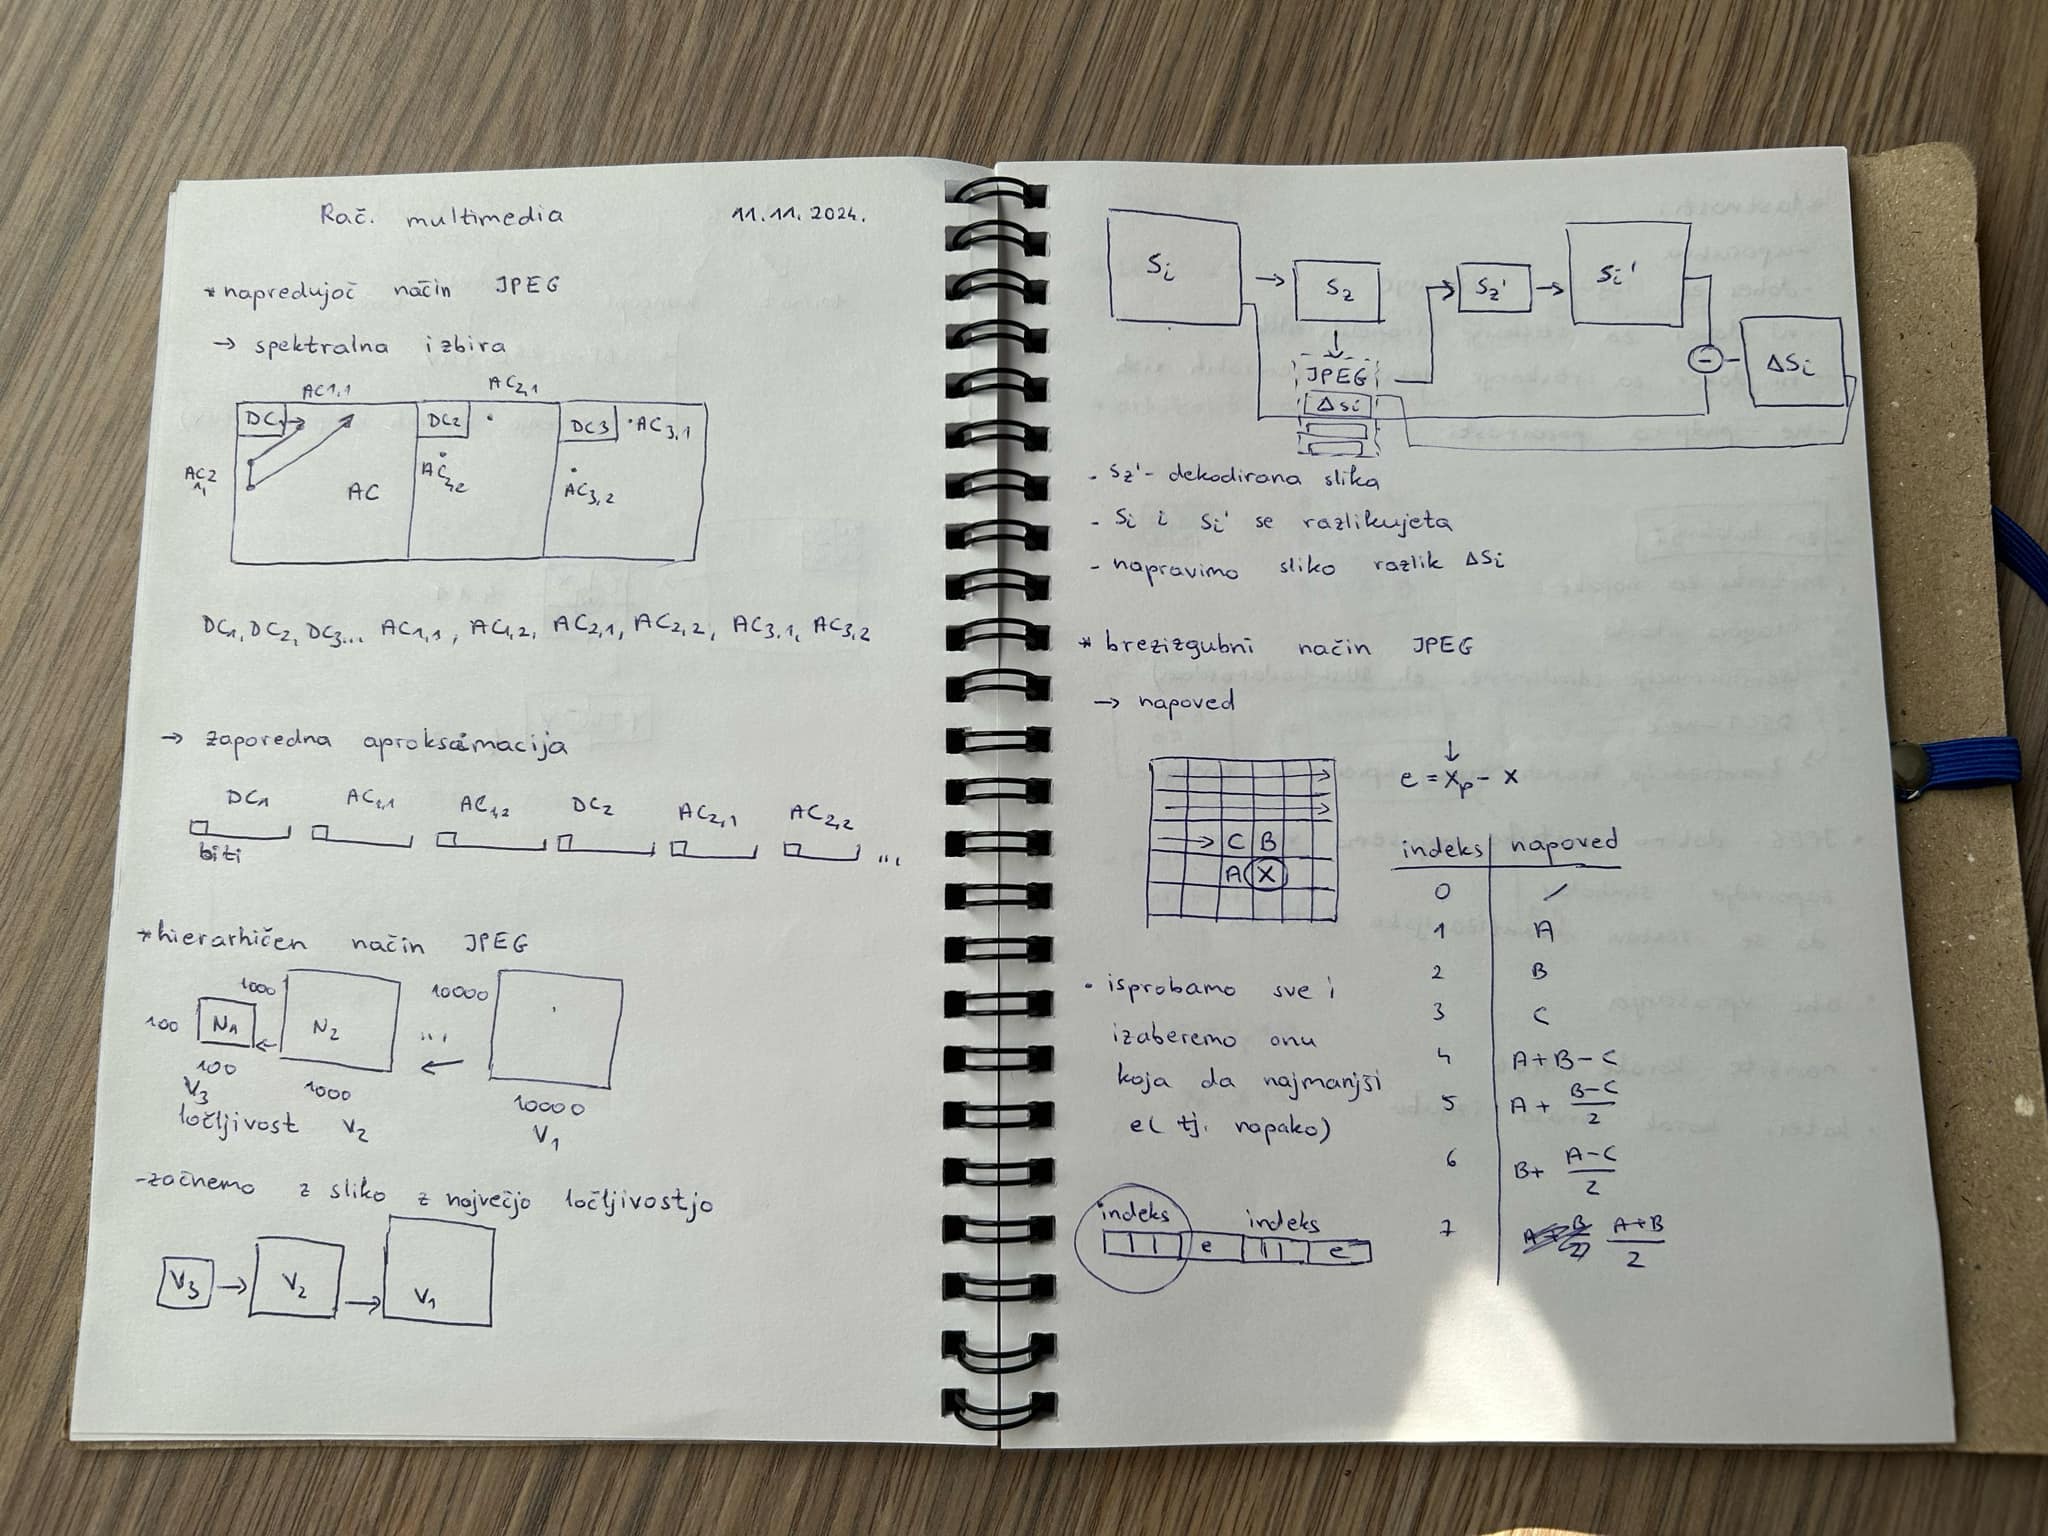 Rač. multimedia 11.11.2024.
* napredujoč način JPEG
→ spektralna izbira
AC1,1 AC2,1
DC1 DC2 DC3 AC3,1
AC2 1, AC AC2,2 AC3,2
DC1, DC2, DC3... AC1,1, AC1,2, AC2,1, AC2,2, AC3,1, AC3,2
→ zaporedna aproksimacija
DC1 AC1,1 AC1,2 DC2 AC2,1 AC2,2
biti ...
* hierarhičen način JPEG
1000 10000
100 N1 N2 ...
100 1000 10000
V3
ločljivost V2 V1
- začnemo z sliko z največjo ločljivostjo
V3 → V2 → V1
Si → Sz Sz' → Si'
JPEG - ΔSi
Δsi
- Sz' - dekodirana slika
- Si i Si' se razlikujeta
- napravimo sliko razlik ΔSi
* brezizgubni način JPEG
→ napoved
e = Xp - X
C B
A X
indeks napoved
0 /
1 A
2 B
3 C
4 A+B-C
5 A + B-C/2
6 B+ A-C/2
7 A+B/2
• isprobamo sve i
izaberemo onu
koja da najmanjši
e( tj. napako)
indeks indeks
e e